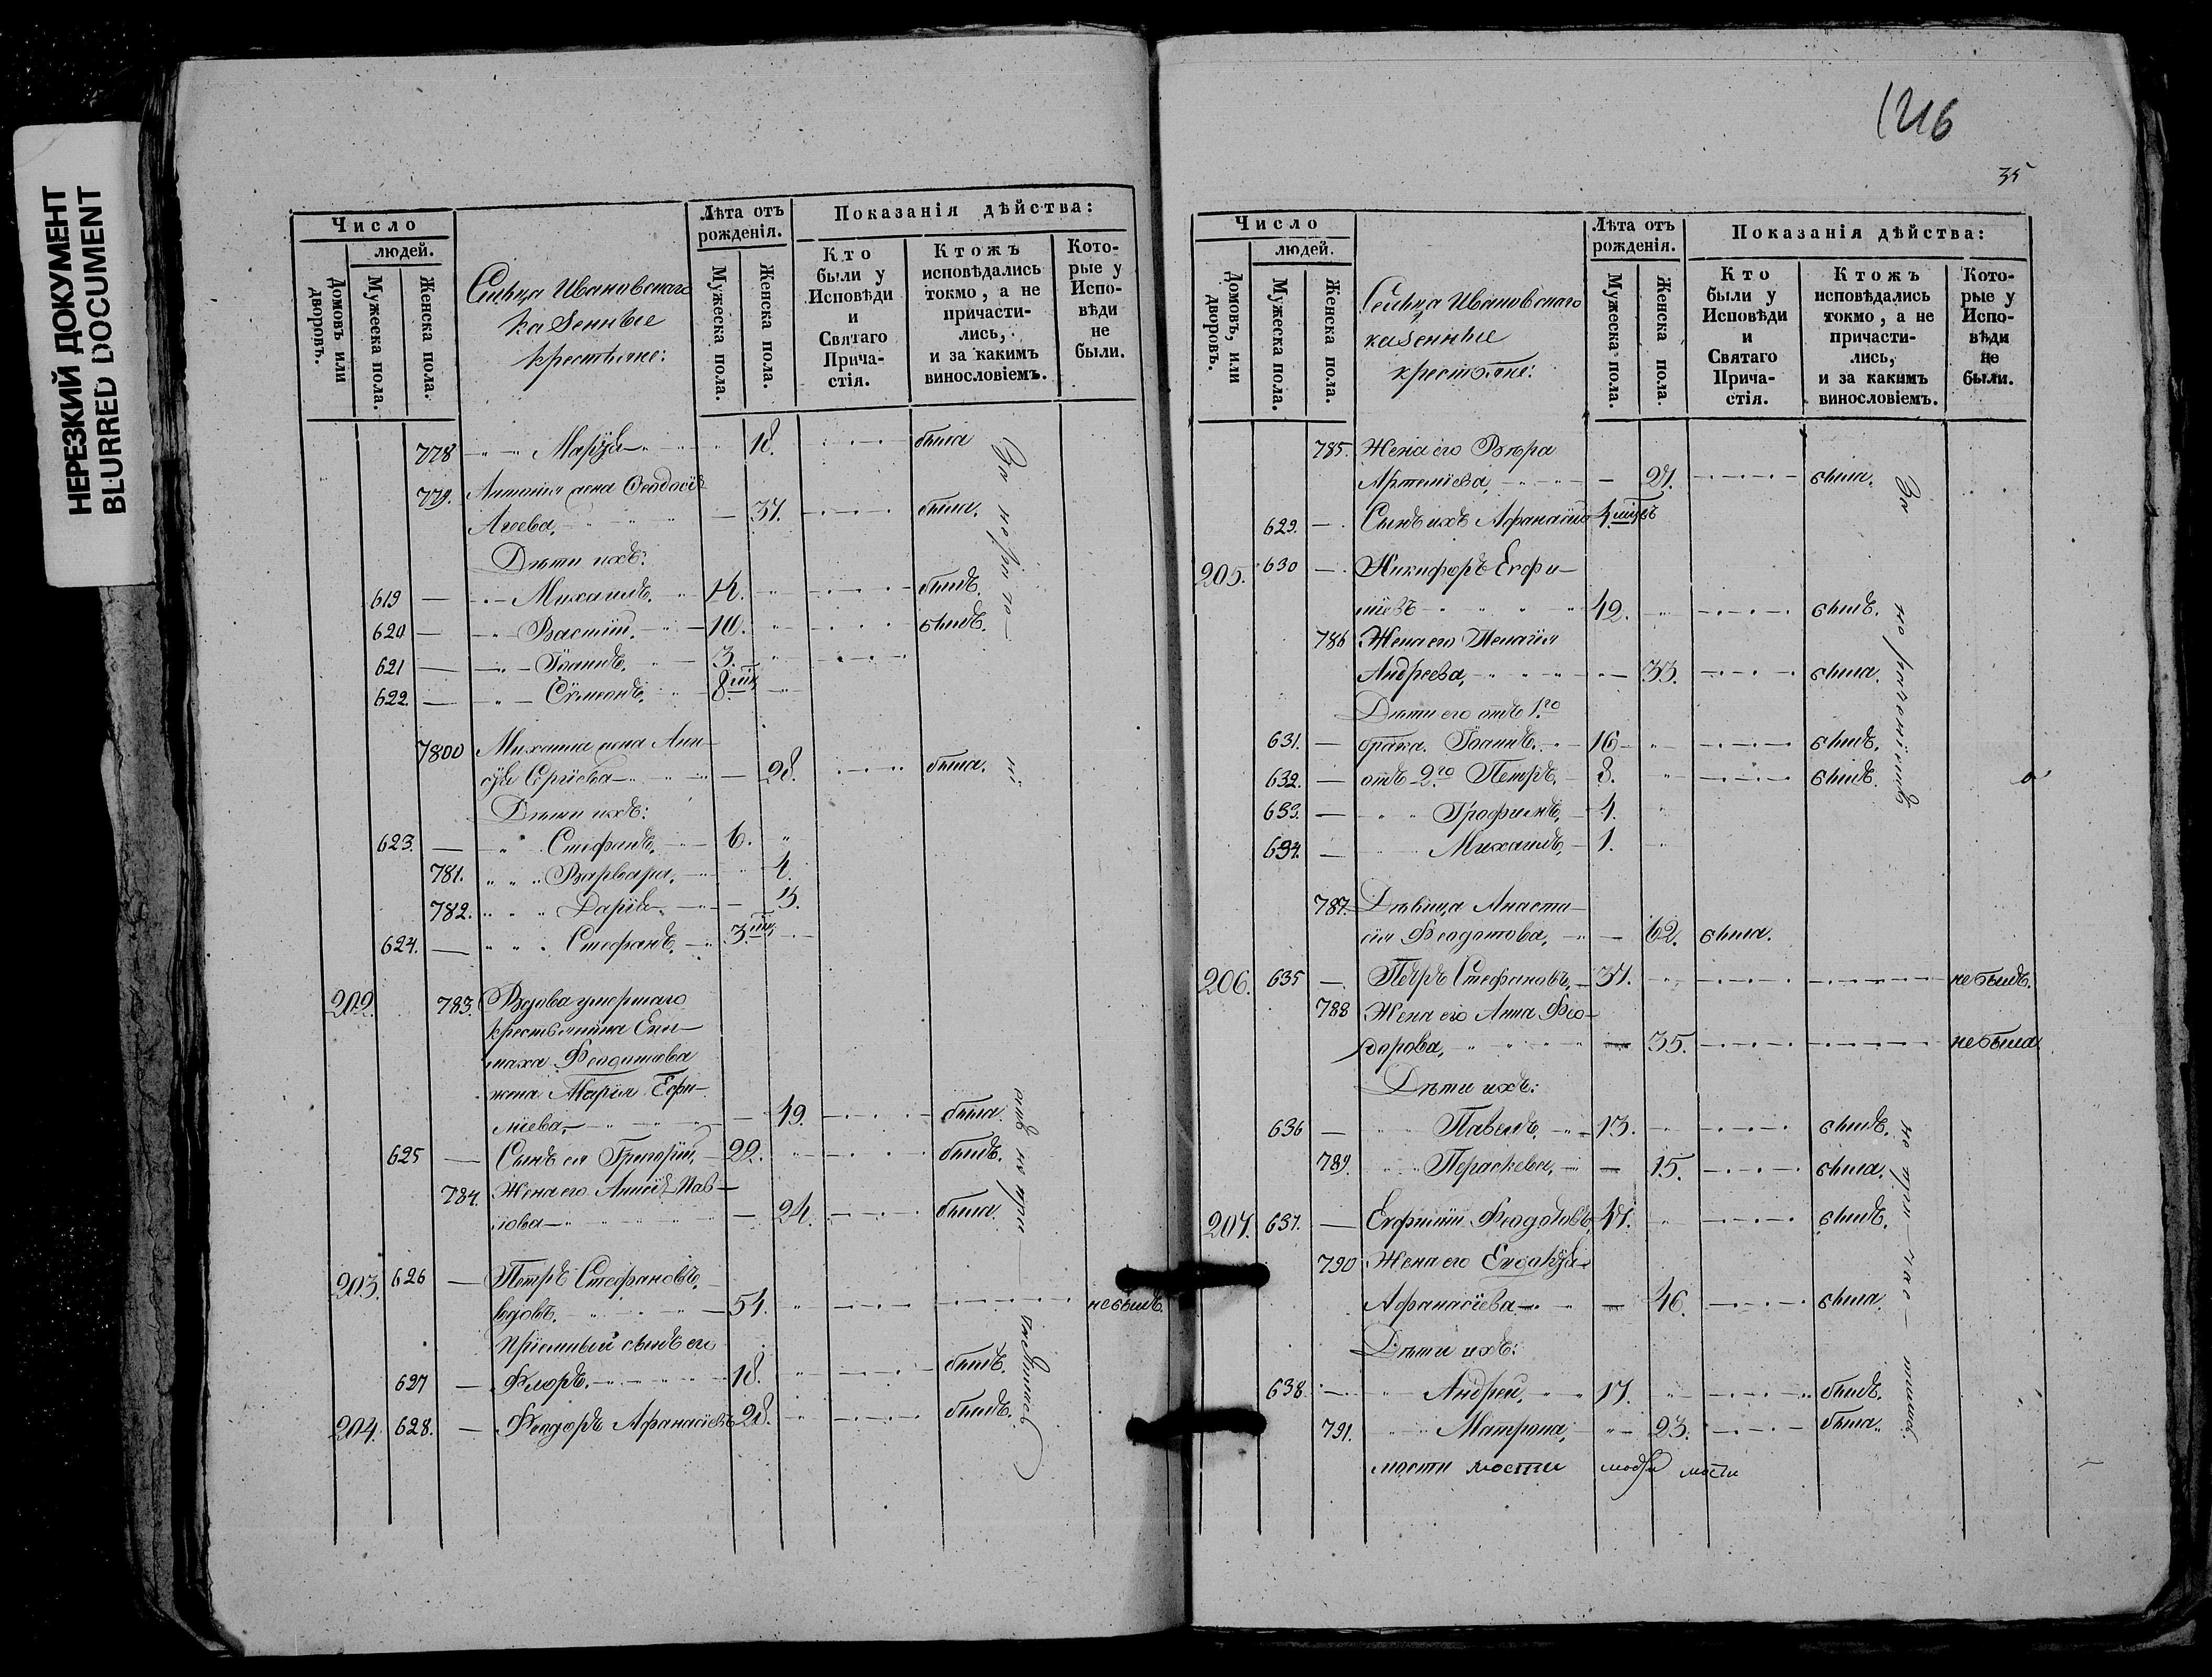 НЕРЕЗКИЙ ДОКУМЕНТ
BLURRED DOCUMENT
Число
людей.
Домовъ или дворовъ.
Мужеска пола.
Женска пола.
Сельца Ивановскаго
казенные
крестьяне:
Лѣта отъ рожденія.
Мужеска пола.
Женска пола.
Показанія дѣйства:
Кто были у Исповѣди и Святаго Прича-стія.
Ктожъ исповѣдались токмо, а не причасти-лись, и за какимъ винословіемъ.
Кото-рые у Испо-вѣди не были.
778 Марѳа 18. была
779. Антонія жена Ѳеодосія
37. была.
Дѣти ихъ:
619 — Михаилъ. 14. былъ.
620 — Василій. 10. былъ.
621 — Іоаннъ. 3.
622. — Сѵмеонъ. 8
7800 Михаила жена Ани-
сія Сергіева 28. была.
Дѣти ихъ:
623. — Стефанъ. 6.
781. Варвара. 4.
782. Дарія
624. — Стефанъ. 3
202. 783. Вдова умершаго
крестьянина
Ѳеодотова
жена Марія Ефи-
міева, 49. была.
625 — Сынъ ея Григорій, 22. былъ.
784. Жена его Пав-
лова 24. была.
203. 626 — Петръ Стефановъ,
вдовъ. 51. не былъ.
Пріемный сынъ его
627 — Флоръ. 18. былъ.
204. 628. — Ѳеодоръ Афанасіевъ 28. былъ.
1216
35
Число
людей.
Домовъ, или дворовъ.
Мужеска пола.
Женска пола.
Сельца Ивановскаго
казенные
крестьяне:
Лѣта отъ рожденія.
Мужеска пола.
Женска пола.
Показанія дѣйства:
Кто были у Исповѣди и Святаго Прича-стія.
Ктожъ исповѣдались токмо, а не причасти-лись, и за какимъ винословіемъ.
Кото-рые у Испо-вѣди не были.
785. Жена его Вѣра
Артеміева, 27. была.
629. — Сынъ ихъ Афанасій
205. 630 — Никифоръ Евфи-
міевъ 42. былъ.
786 Жена его Пелагія
Андреева, 33. была.
Дѣти его отъ 1го
631. — брака Іоаннъ. 16 былъ.
632. — отъ 2го Петръ, 8. былъ.
633. — Трофимъ, 4.
634. — Михаилъ, 1.
787. Дѣвица Анаста-
сія Ѳеодотова, 62. была.
206. 635 — Петръ Стефановъ, 37. не былъ.
788 Жена его Анна Ѳео-
дорова, 35. не была.
Дѣти ихъ:
636 — Павелъ, 13. былъ.
789. Параскева, 15. была.
207. 637. — Евфимій Ѳеодотовъ, 47. былъ.
790 Жена его Евдокія
Афанасіева 46. была.
Дѣти ихъ:
638. — Андрей, 17. былъ.
791. Матрона, 23. была.